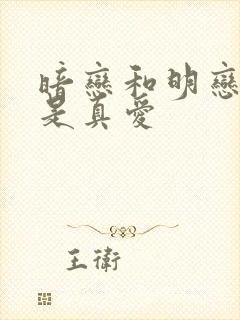 暗戀和明戀
是真愛
王衛